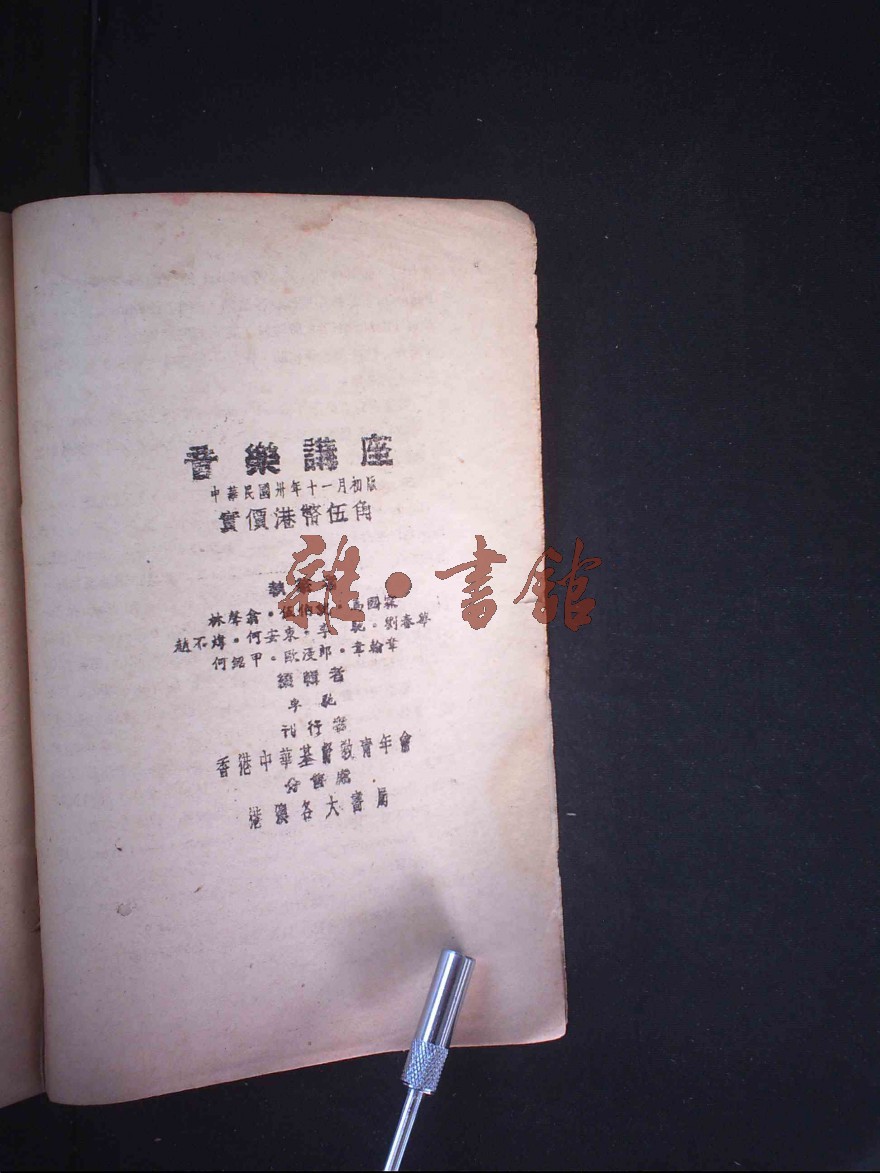 音樂講座
中華民國卅年十一月初版
實價港幣伍角
雜·書館
執筆者
林聲翕·伍伯就·馬國霖
趙不煒·何安東·李 馳·劉春華
何銘甲·歐漫郎·韋翰章
編輯者
李 馳
刊行者
香港中華基督教青年會
分售處
港澳各大書局